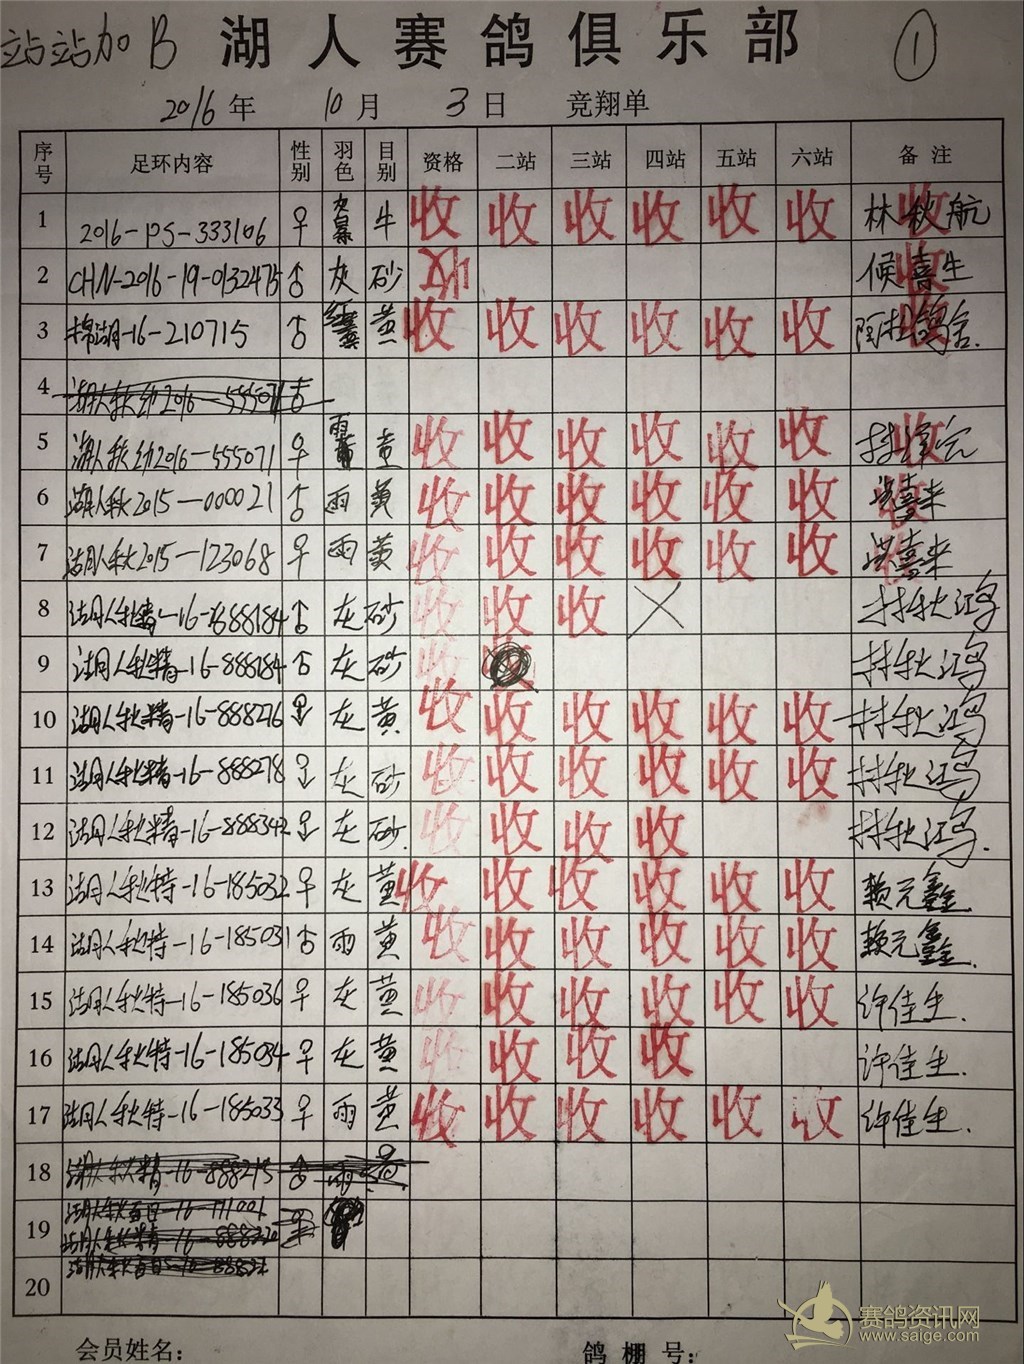 站站加B 湖人赛鸽俱乐部 ①
2016年 10月 3日 竞翔单
序号 足环内容 性别 羽色 目别 资格 二站 三站 四站 五站 六站 备注
1 2016-DS-333106 ♀ 灰 牛 收 收 收 收 收 收 林秋航
2 CHN-2016-19-0132475 ♂ 灰 砂 收 候喜生
3 棉湖-16-210715 ♂ 黄 收 收 收 收 收 收
4 湖人秋幼2016-555071
5 湖人秋幼2016-555071 ♀ 雨 黄 收 收 收 收 收 收
6 湖人秋2015-000021 ♂ 雨 黄 收 收 收 收 收 收 洪喜来
7 湖人秋2015-123068 ♀ 雨 黄 收 收 收 收 收 收 洪喜来
8 湖人秋精-16-888184 ♂ 灰 砂 收 收 收 × 林秋鸿
9 湖人秋精-16-888184 ♂ 灰 砂 收 林秋鸿
10 湖人秋精-16-888276 灰 黄 收 收 收 收 收 收 林秋鸿
11 湖人秋精-16-888278 灰 砂 收 收 收 收 收 收 林秋鸿
12 湖人秋精-16-888342 灰 砂. 收 收 收 收 林秋鸿.
13 湖人秋特-16-185032 ♀ 灰 黄 收 收 收 收 收 收 赖元鑫
14 湖人秋特-16-185031 ♂ 雨 黄 收 收 收 收 收 收 赖元鑫.
15 湖人秋特-16-185036 ♀ 灰 黄 收 收 收 收 收 收 许佳生.
16 湖人秋特-16-185034 ♀ 灰 黄 收 收 收 收 许佳生.
17 湖人秋特-16-185033 ♀ 雨 黄 收 收 收 收 收 收 许佳生.
18 湖人秋精-16-888215
19
20
会员姓名: 鸽棚号:
赛鸽资讯网
www.saige.com